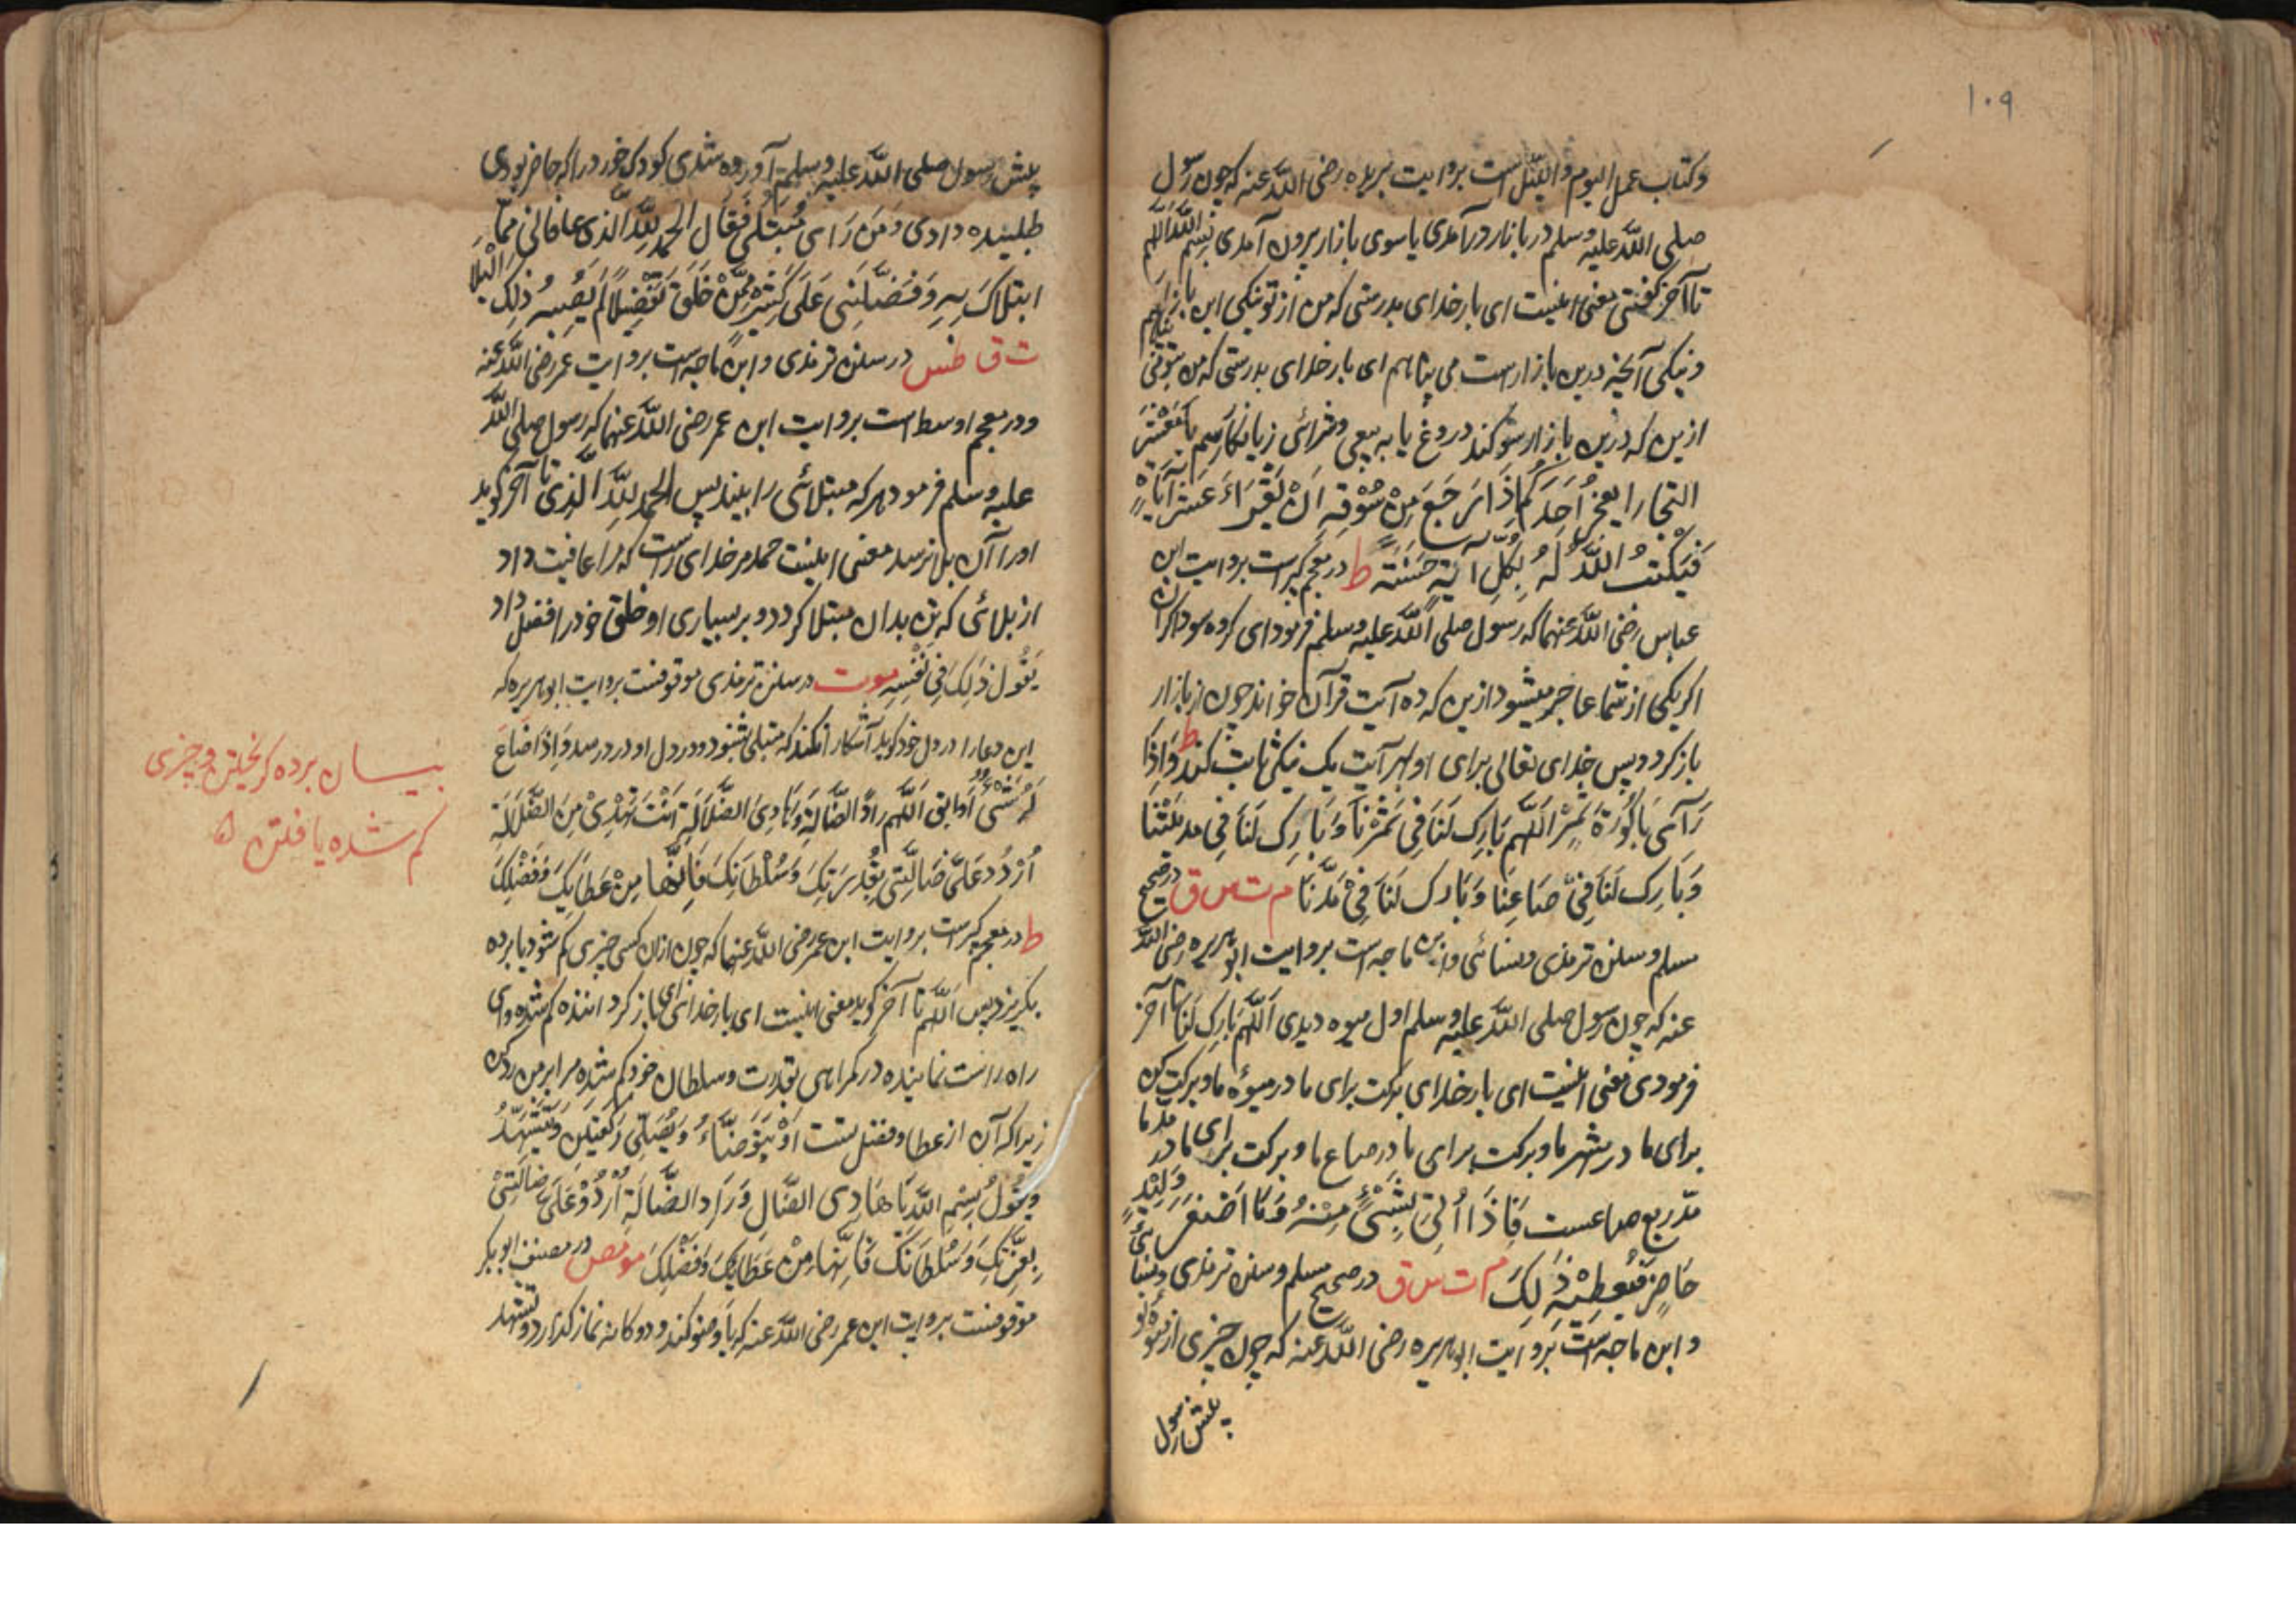 ۱۰۹
وکتاب عمل الیوم واللیل است بروایت بریده رضی الله عنه که چون رسول
صلی الله علیه وسلم در بازار درآمدی یا سوی بازار بیرون آمدی بسم الله اللهم
تا آخر گفتی معنی اینست ای بار خدای بدرستی که من از تو نیکی این بازار
ونیکی آنچه درین بازارست می پناهم ای بار خدای بدرستی که من بتو
ازین که درین بازار سوکند دروغ یا به بیعی وشرائی زیانکار رسم یا معشر
التجار ایعجز احدکم اذا رجع من سوقه ان یقراء عشر آیات
فیکتب الله له بکل آیة حسنة ط در معجم کبیر است بروایت ابن
عباس رضی الله عنهما که رسول صلی الله علیه وسلم فرمود ای کروه سوداکران
اکر یکی از شما عاجز میشود ازین که ده آیت قرآن خواند چون از بازار
باز کردد پس خدای تعالی برای او بهر آیت یک نیکی ثابت کند ط واذا
رآی باکورة ثمر اللهم بارک لنا فی ثمرنا وبارک لنا فی مدینتنا
وبارک لنا فی صاعنا وبارک لنا فی مدنا م ت س ق در صحیح
مسلم وسنن ترمذی ونسائی وابن ماجه است بروایت ابوهریره رضی الله
عنه که چون رسول صلی الله علیه وسلم اول میوه دیدی اللهم بارک لنا تا آخر
فرمودی معنی اینست ای بار خدای برکت برای ما در میوۀ ما وبرکت کن
برای ما در شهر ما وبرکت برای ما در صاع ما وبرکت برای ما در مد ما
مد ربع صاعست فاذا اُتی بشیء منه دعا اصغر ولید
حاضر فیعطیه ذلک م ت س ق در صحیح مسلم وسنن ترمذی ونسائی
وابن ماجه است بروایت ابوهریره رضی الله عنه که چون چیزی از میوۀ نو
پیش رسول
پیش رسول صلی الله علیه وسلم آورده شدی کودک خورد را که حاضر بودی
طلبیده دادی ومن رای مبتلی فقال الحمد لله الذی عافانی مما
ابتلاک به وفضلنی علی کثیر ممن خلق تفضیلا لم یصبه ذلک البلا
ت ق طس در سنن ترمذی وابن ماجه است بروایت عمر رضی الله عنه
ودر معجم اوسط است بروایت ابن عمر رضی الله عنهما که رسول صلی الله
علیه وسلم فرمود هر که مبتلائی را بیند پس الحمد لله الذی تا آخر کوید
اورا آن بلا نرسد معنی اینست حمد مر خدای راست که مرا عافیت داد
از بلائی که بدان مبتلا کرد و بر بسیاری از خلق خود را فضل داد
یقول ذلک فی نفسه موت در سنن ترمذی موقوفست بروایت ابوهریره که
این دعا را در دل خود کوید آشکارا نکند که مبتلی شنود ودر دل او درد رسد واذا ضاع
له شیء او ابق اللهم راد الضالة وهادی الضلالة انت تهدی من الضلالة
اردد علی ضالتی بقدرتک وسلطانک فانها من عطائک وفضلک
ط در معجم کبیرست بروایت ابن عمر رضی الله عنهما که چون از ان کسی چیزی کم شود یا برده
بکریزد پس اللهم تا آخر کوید معنی اینست ای بار خدای ای باز کرداننده کم شده وای
راه راست نماینده در کمراهی بقدرت وسلطان خود کم شده مرا بر من رد کن
زیرا که آن از عطا وفضل تست او یتوضاء ویصلی رکعتین ویتشهد
ویقول بسم الله یا هادی الضال وراد الضالة اردد علی ضالتی
بعزتک وسلطانک فانها من عطائک وفضلک مو مص در مصنف ابوبکر
موقوفست بروایت ابن عمر رضی الله عنه که یا وضو کند ودوکانه نماز کذارد وتشهد
بیان برده کریختن وچیزی
کم شده یافتن